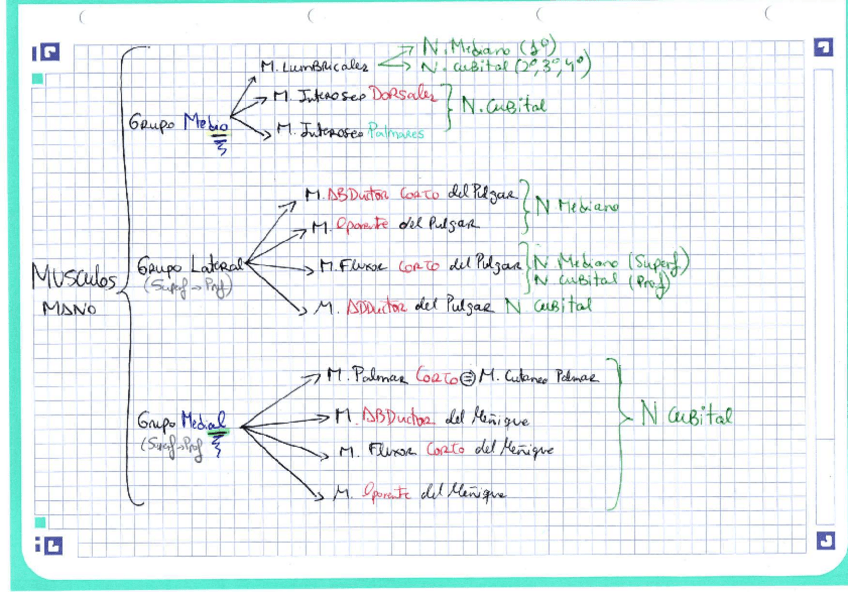 N. Mediano (1º)
M. Lumbricales
N. Cubital (2º, 3º, 4º)
M. Interoseo Dorsales
N. Cubital
Grupo Medio
M. Interoseo Palmares
M. ABDuctor Corto del Pulgar
N Mediano
M. Oponente del Pulgar
Grupo Lateral
(Superf → Prof)
M. Flexor Corto del Pulgar
N Mediano (Superf)
N Cubital (Prof)
Musculos
Mano
M. ADDuctor del Pulgar N Cubital
M. Palmar Corto = M. Cutaneo Palmar
Grupo Medial
(Superf→Prof
M. ABDuctor del Meñique
N Cubital
M. Flexor Corto del Meñique
M. Oponente del Meñique